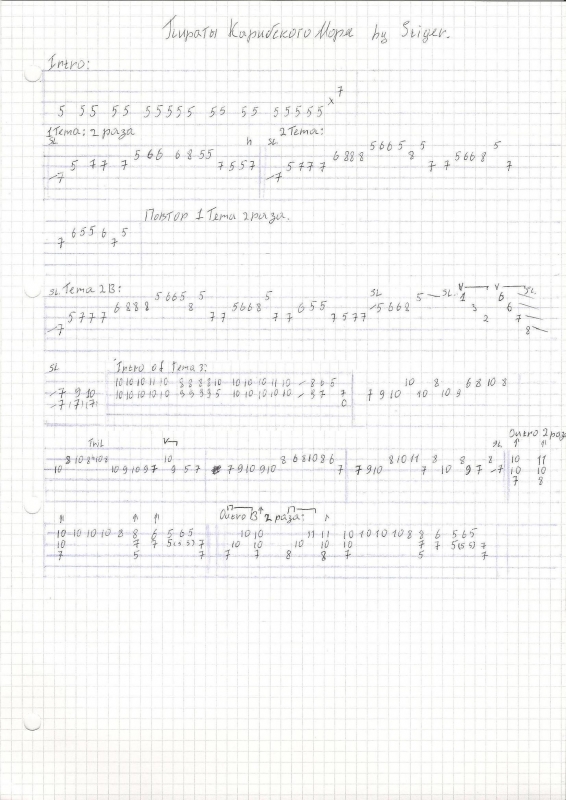 Пираты Карибского Моря by Stiger.
Intro:
5 55 55 55555 55 55 55555 x 7
1 Тема: 2 раза 2 Тема:
SL 5 6 6 6 8 5 5 h SL 6 8 8 8 5 6 6 5 8 5 5
7 5 7 7 7 7 5 5 7 7 5 7 7 7 7 7 5 6 6 8 7
Повтор 1 Тема 2 раза.
7 6 5 5 6 7 5
SL Тема 2В:
6 8 8 8 5 6 6 5 8 5 5 6 6 8 5 6 5 5 SL 5 6 6 8 5 SL 1 6 SL
7 5 7 7 7 7 7 7 7 7 5 7 7 3 2 6 7 8
SL Intro of Тема 3:
10 10 10 11 10 8 8 8 8 10 10 10 10 11 10 8 6 5 10 8 6 8 10 8
7 9 10 10 10 10 10 10 9 9 9 9 5 10 10 10 10 5 7 7 7 9 10 10 10 9
7 7 7 0
Outro 2 раза
Tril V SL
8 10 8 10 8 10 8 6 8 10 8 6 8 10 11 8 8 8 10 11
10 10 9 10 9 7 9 5 7 7 9 10 9 10 7 7 9 10 7 10 9 7 7 10 10
7 8
Outro B 2 раза:
10 10 10 10 10 8 8 6 5 6 5 10 10 11 11 10 10 10 10 8 8 6 5 6 5
10 7 7 5 (5 5) 7 10 10 10 10 10 7 7 5 (5 5) 7
7 5 7 7 7 8 8 7 5 7